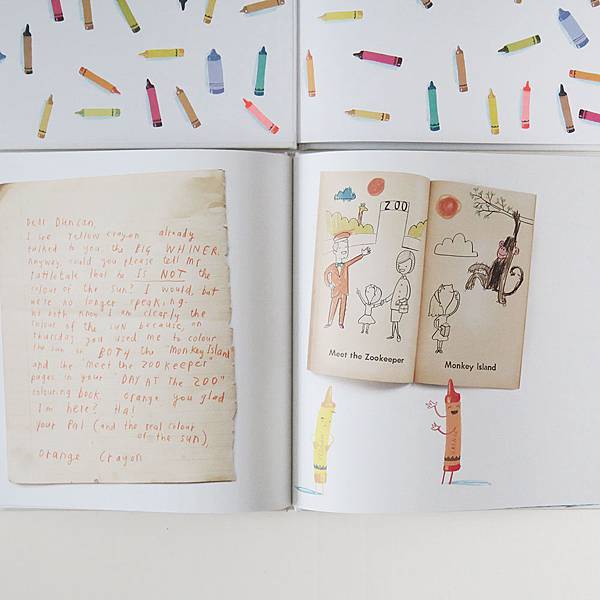 Dear Duncan,
I see Yellow Crayon already
talked to you, the BIG WHINER.
Anyway, could you please tell Mr
Tattletale that he IS NOT the
colour of the sun? I would, but
we're no longer speaking.
We both know I am clearly the
colour of the sun because, on
Thursday, you used me to colour
the sun in BOTH the "Monkey Island"
and the "Meet the Zookeeper"
pages in your "DAY AT THE ZOO"
colouring book. Orange you glad
I'm here? Ha!
Your Pal (and the real colour
of the sun),
Orange Crayon
ZOO
Meet the Zookeeper
Monkey Island